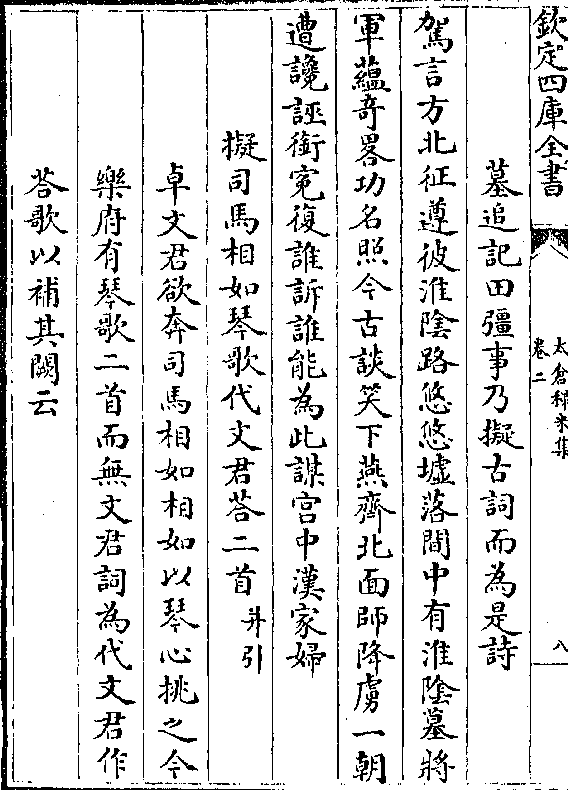 欽定四庫全書
太倉稊米集
卷二
八
墓追記田彊事乃擬古詞而為是詩
駕言方北征遵彼淮陰路悠悠墟落間中有淮陰墓將
軍蘊奇畧功名照今古談笑下燕齊北面師降虜一朝
遭讒誣銜寃復誰訴誰能為此謀宫中漢家婦
擬司馬相如琴歌代文君荅二首并引
卓文君欲奔司馬相如相如以琴心挑之今
樂府有琴歌二首而無文君詞為代文君作
荅歌以補其闕云